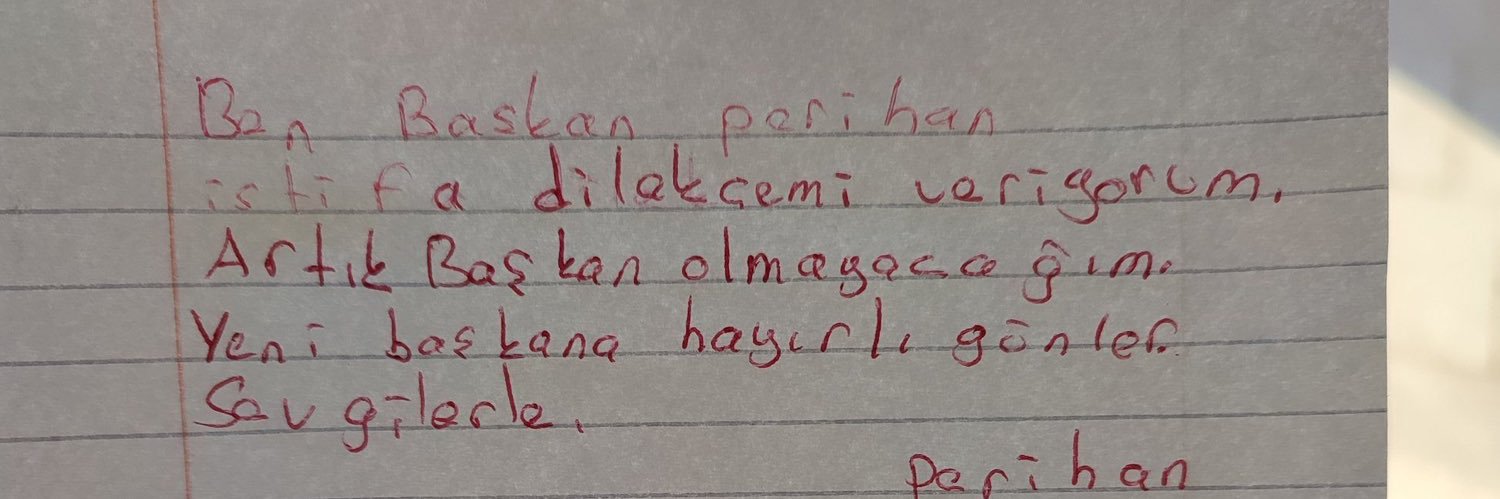 Ben Baskan perihan
istifa dilekçemi veriyorum.
Artık Başkan olmayacağım.
Yeni başkana hayırlı günler.
Sevgilerle.
perihan